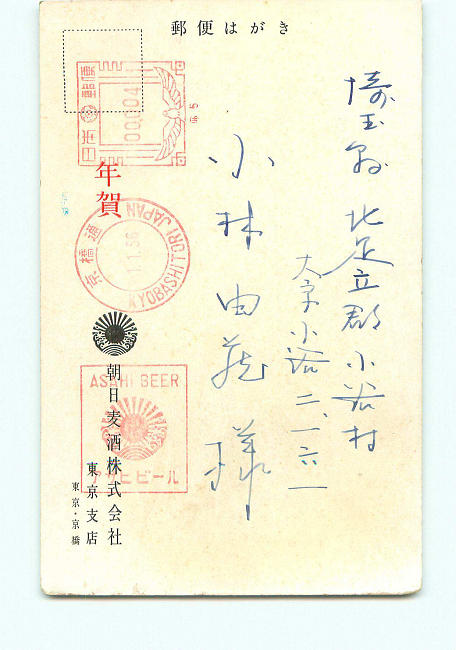 郵便はがき
埼玉県北足立郡小谷村
大字小谷二、一六一
小林由蔵様
日本郵便
00.004
年賀
京橋通
1.1.56
KYOBASHITORI JAPAN
朝日麦酒株式会社
東京支店
東京・京橋
ASAHI BEER
アサヒビール